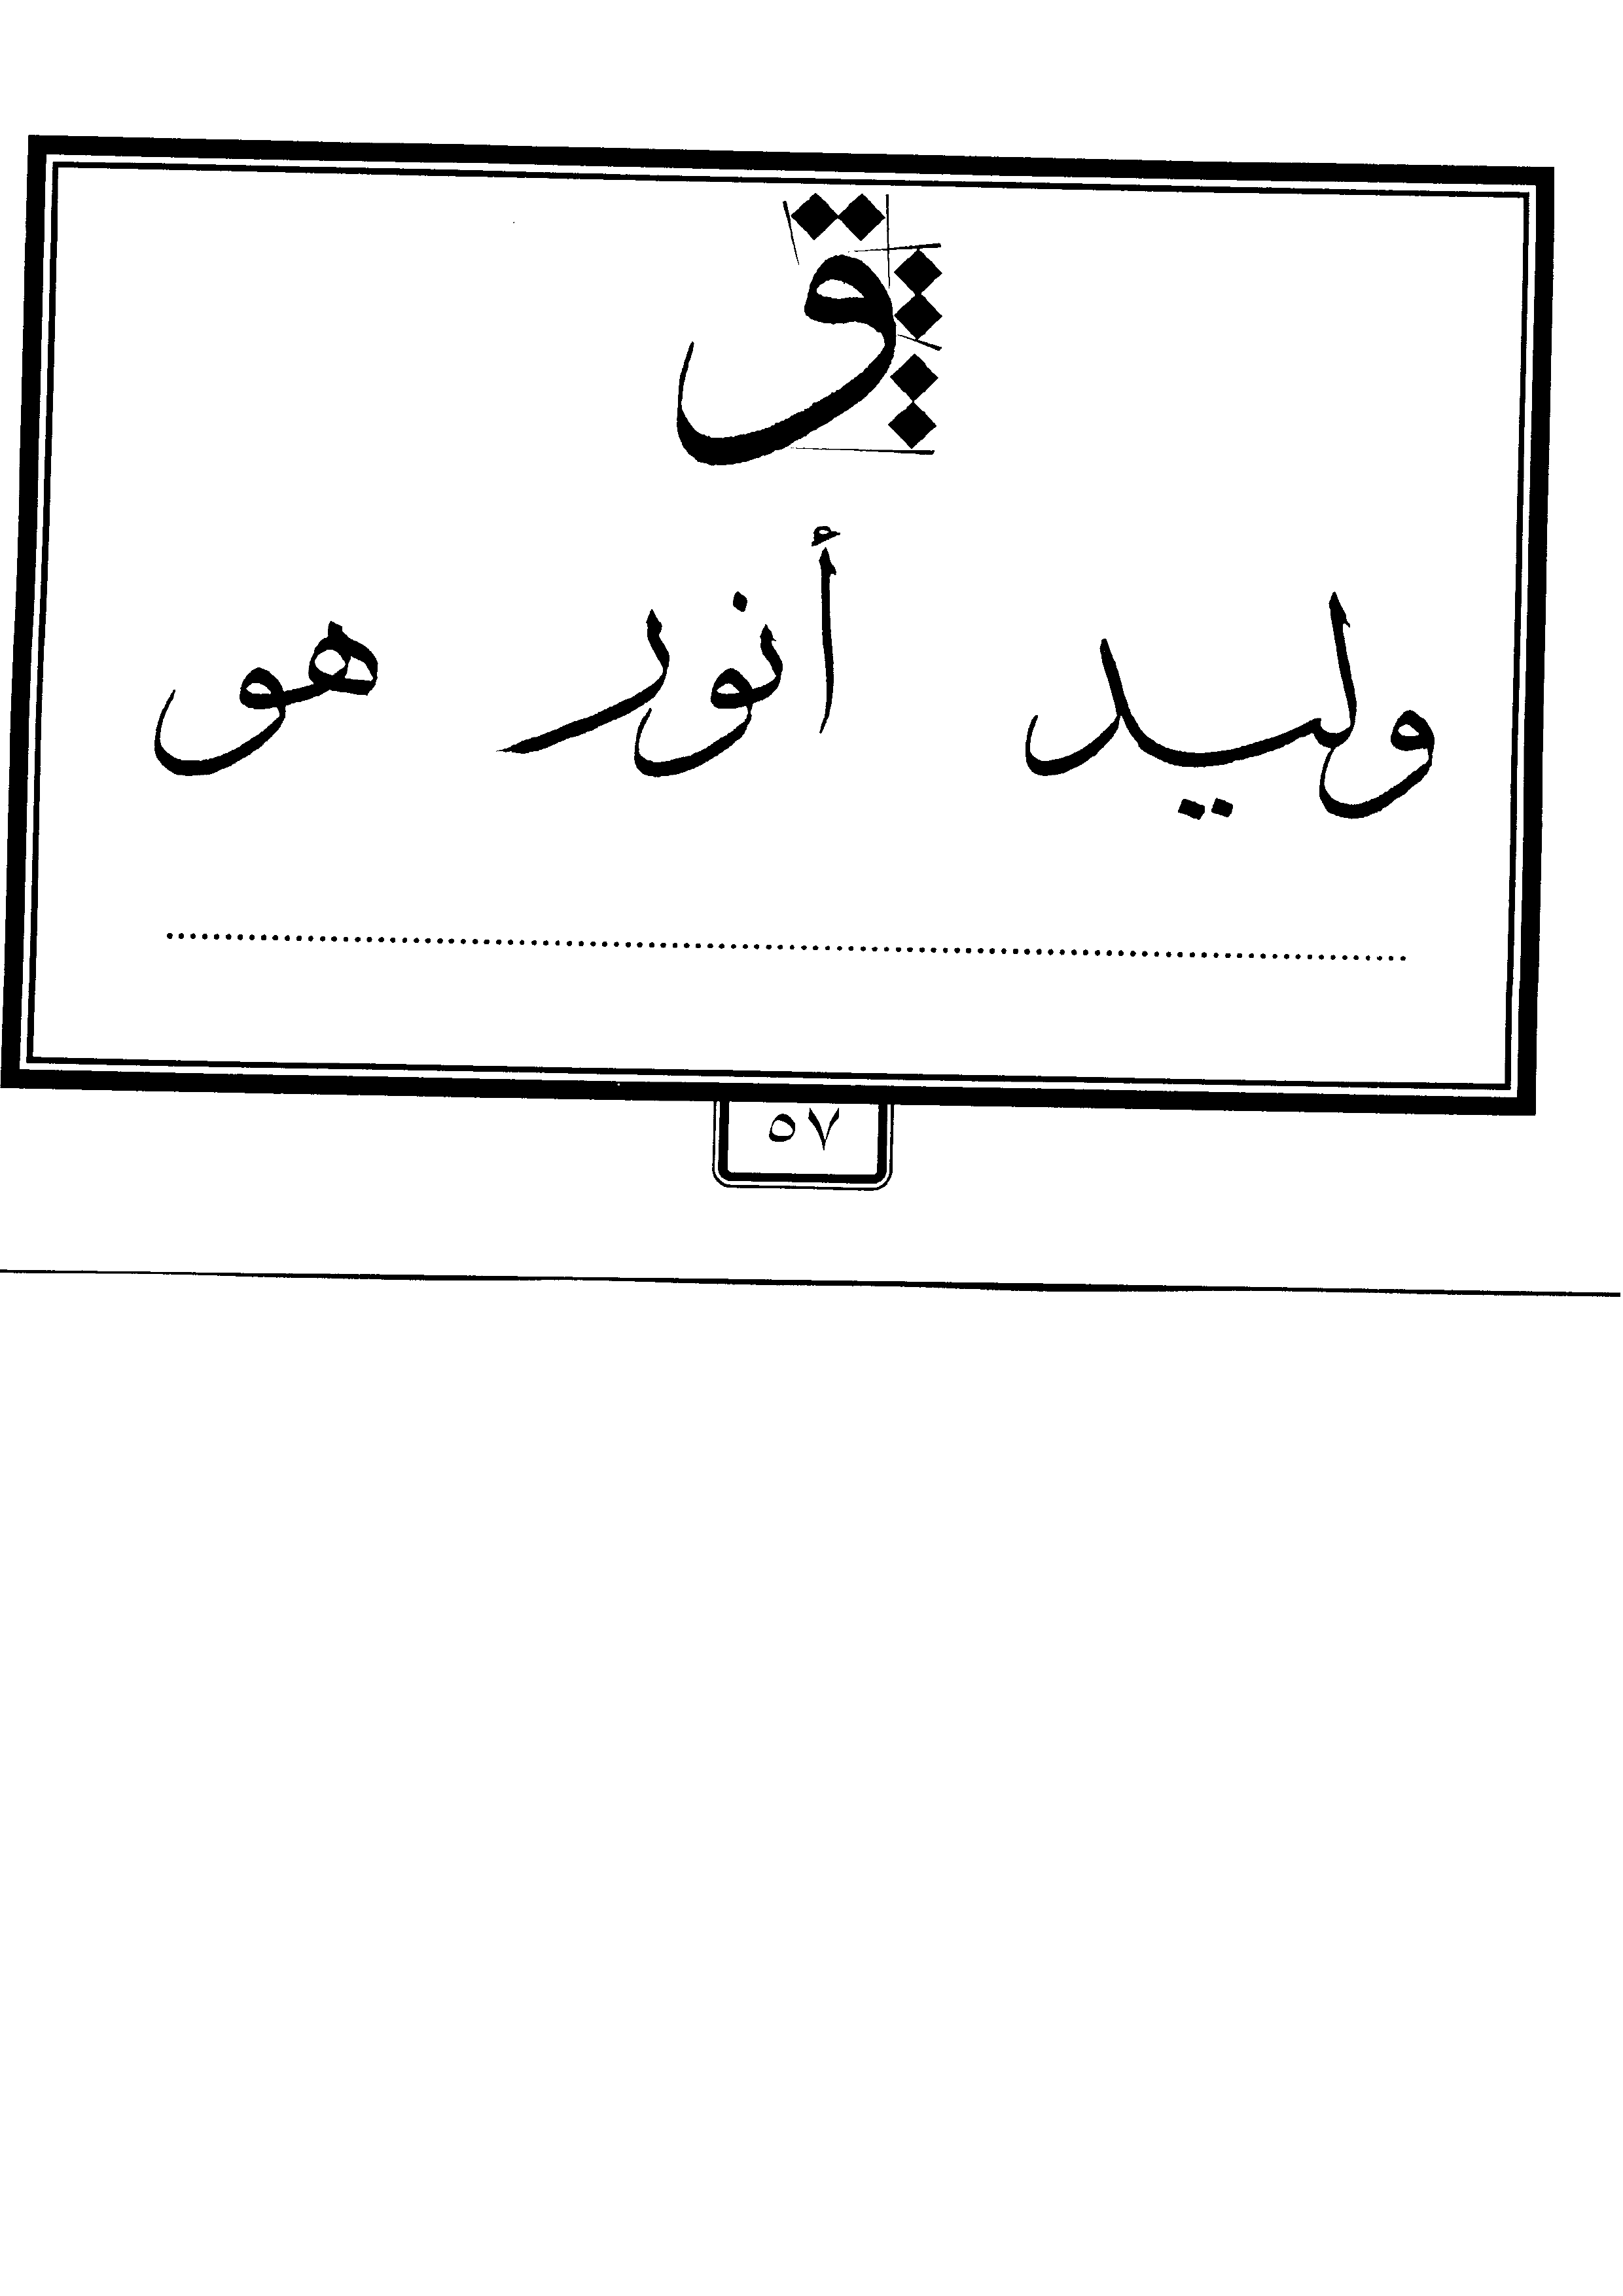 و
وليد أنور هو
٥٧